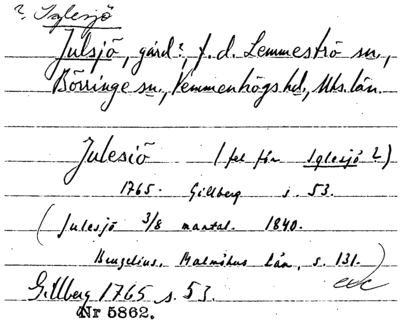 ? Iglesjö
Julsjö, gård?, f.d. Lemmeströ sn.,
Börringe sn., Vemmenhögs hd., Mhs. län.
Julesiö (fel för Iglesjö ?)
1765. Gillberg s. 53.
(Julesjö 3/8 mantal. 1840.
Bengelius, Malmöhus län, s. 131.)
Gillberg 1765 s. 53.
Nr 5862.